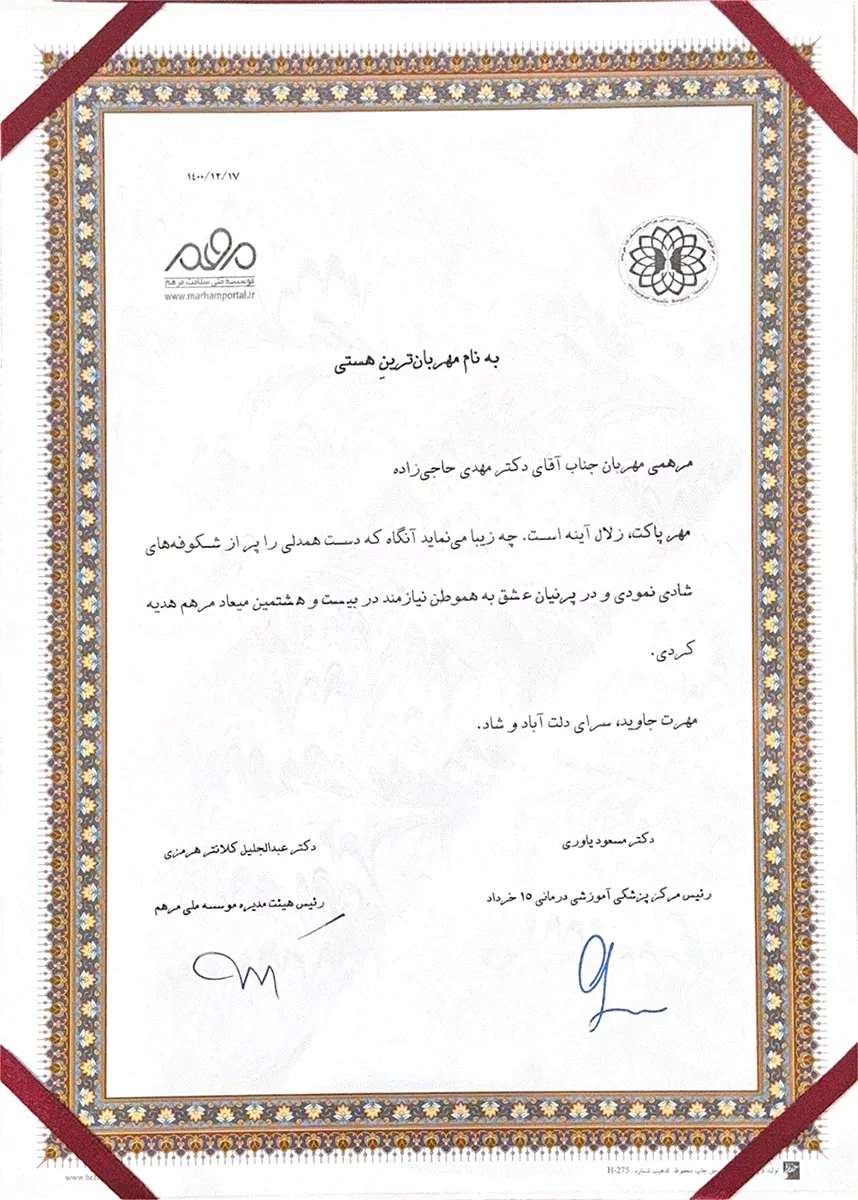 ۱۴۰۰/۱۲/۱۷
مرهم
موسسه ملی سلامت مرهم
www.marhamportal.ir
به نام مهربان‌ترینِ هستی
مرهمی مهربان جناب آقای دکتر مهدی حاجی‌زاده
مهر پاکت، زلال آینه است. چه زیبا می‌نماید آنگاه که دست همدلی را پر از شکوفه‌های
شادی نمودی و در پرنیان عشق به هموطن نیازمند در بیست و هشتمین میعاد مرهم هدیه
کردی.
مهرت جاوید، سرای دلت آباد و شاد.
دکتر مسعود یاوری
رئیس مرکز پزشکی آموزشی درمانی ۱۵ خرداد
دکتر عبدالجلیل کلانتر هرمزی
رئیس هیئت مدیره موسسه ملی مرهم
چاپ محفوظ. تذهیب شماره: H-275